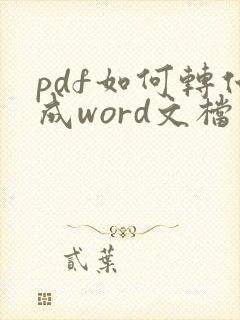 pdf如何轉
成word文檔
貳葉